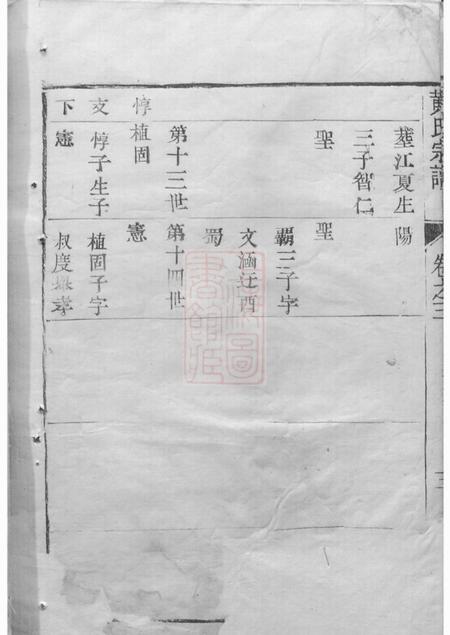 黄氏宗譜
卷之三
三
葬江夏生
三子智仁
聖
第十三世
惇植固
支惇子生子
下憲
陽
聖
霸三子字
文涵迁酉
蜀
第十四世
憲
植固子字
叔度
孝